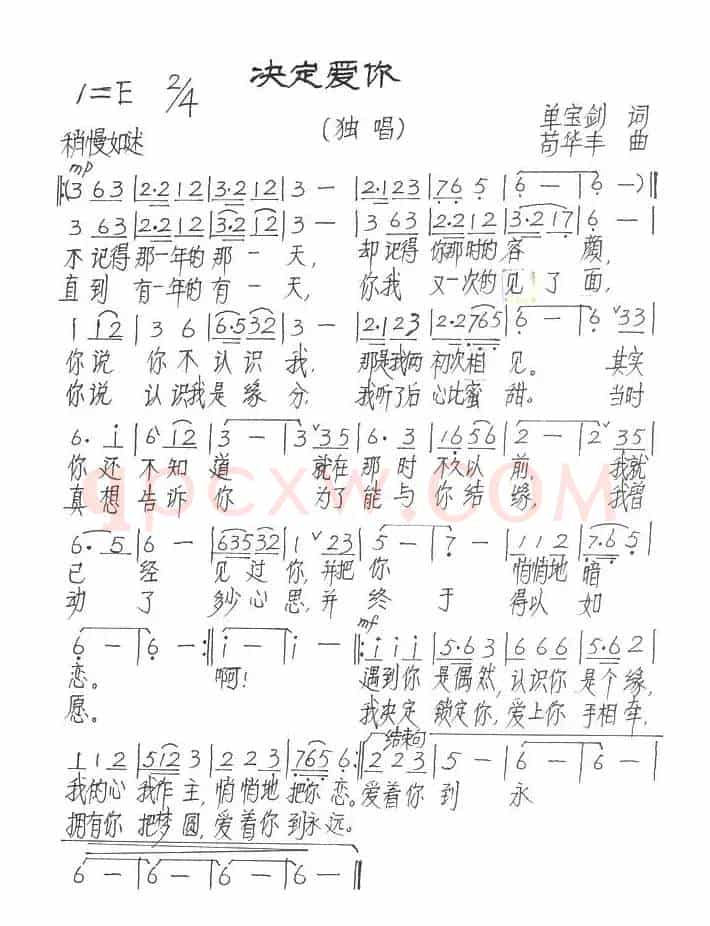 决定爱你
1=E 2/4
(独唱)
单宝剑 词
苟华丰 曲
稍慢如述
mp
‖:(3 6 3 | 2·2 1 2 | 3·2 1 2 | 3 — | 2·1 2 3 | 7 6 5 | 6 — | 6 — )‖
3 6 3 | 2·2 1 2 | 3·2 1 2 | 3 — | 3 6 3 | 2·2 1 2 | 3·2 1 7 | 6 — |
不记得 那一年的 那一天, 却记得 你那时的 容颜,
直到 有一年的 有一天, 你我 又一次的 见了面,
1 1 2 | 3 6 | 6·5 3 2 | 3 — | 2·1 2 3 | 2·2 7 6 5 | 6 — | 6 ˅3 3 |
你说 你不认识我, 那是我俩 初次相见。 其实
你说 认识我是缘分, 我听了后 心比蜜甜。 当时
6· i | 6 i 2 | 3 — | 3 ˅3 5 | 6· 3 | 1 6 5 6 | 2 — | 2 ˅3 5 |
你还不知道 就在那时不久以前, 我就
真想告诉你 为了能与你结缘, 我曾
6· 5 | 6 — | 6 3 5 3 2 | 1 ˅2 3 | 5 — | 7 — | 1 1 2 | 7·6 5 |
已经见过你, 并把你 悄悄地暗
动了多少心思, 并终于 得以如
6 — | 6 — :‖ i — | i — :‖: i i i | 5·6 3 | 6 6 6 | 5·6 2 |
mf
恋。 啊! 遇到你 是偶然, 认识你 是个缘,
愿。 我决定 锁定你, 爱上你 手相牵,
结束句
1 1 2 | 5 1 2 3 | 2 2 3 | 7 6 5 6· :‖ 2 2 3 | 5 — | 6 — | 6 — |
我的心 我作主, 悄悄地 把你恋。 爱着你 到 永
拥有你 把梦圆, 爱着你 到永远。
6 — | 6 — | 6 — | 6 — ‖
qpcxw.COM